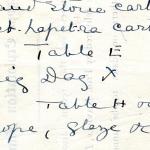 and stone cart
eb. Lapetra cart
Table E
ig Dag X
Table H oc
ope, Glaze oc